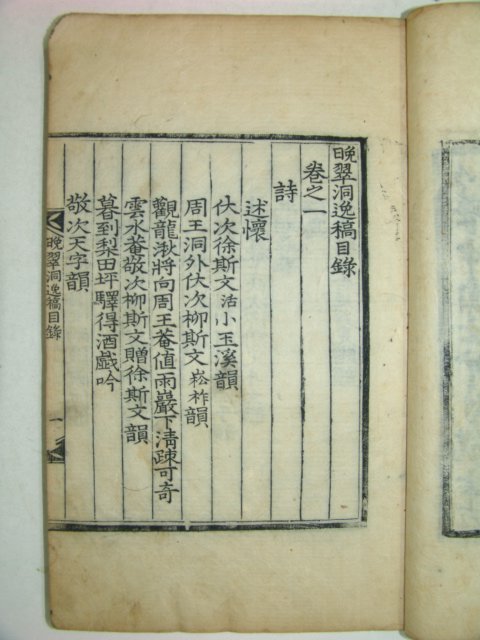 晚翠洞逸稿目錄
卷之一
詩
述懷
伏次徐斯文活小玉溪韻
周王洞外伏次柳斯文崧祚韻
觀龍湫將向周王菴值雨巖下淸疎可奇
雲水菴敬次柳斯文贈徐斯文韻
暮到梨田坪驛得酒戲吟
敬次天字韻
晚翠洞逸稿目錄
一